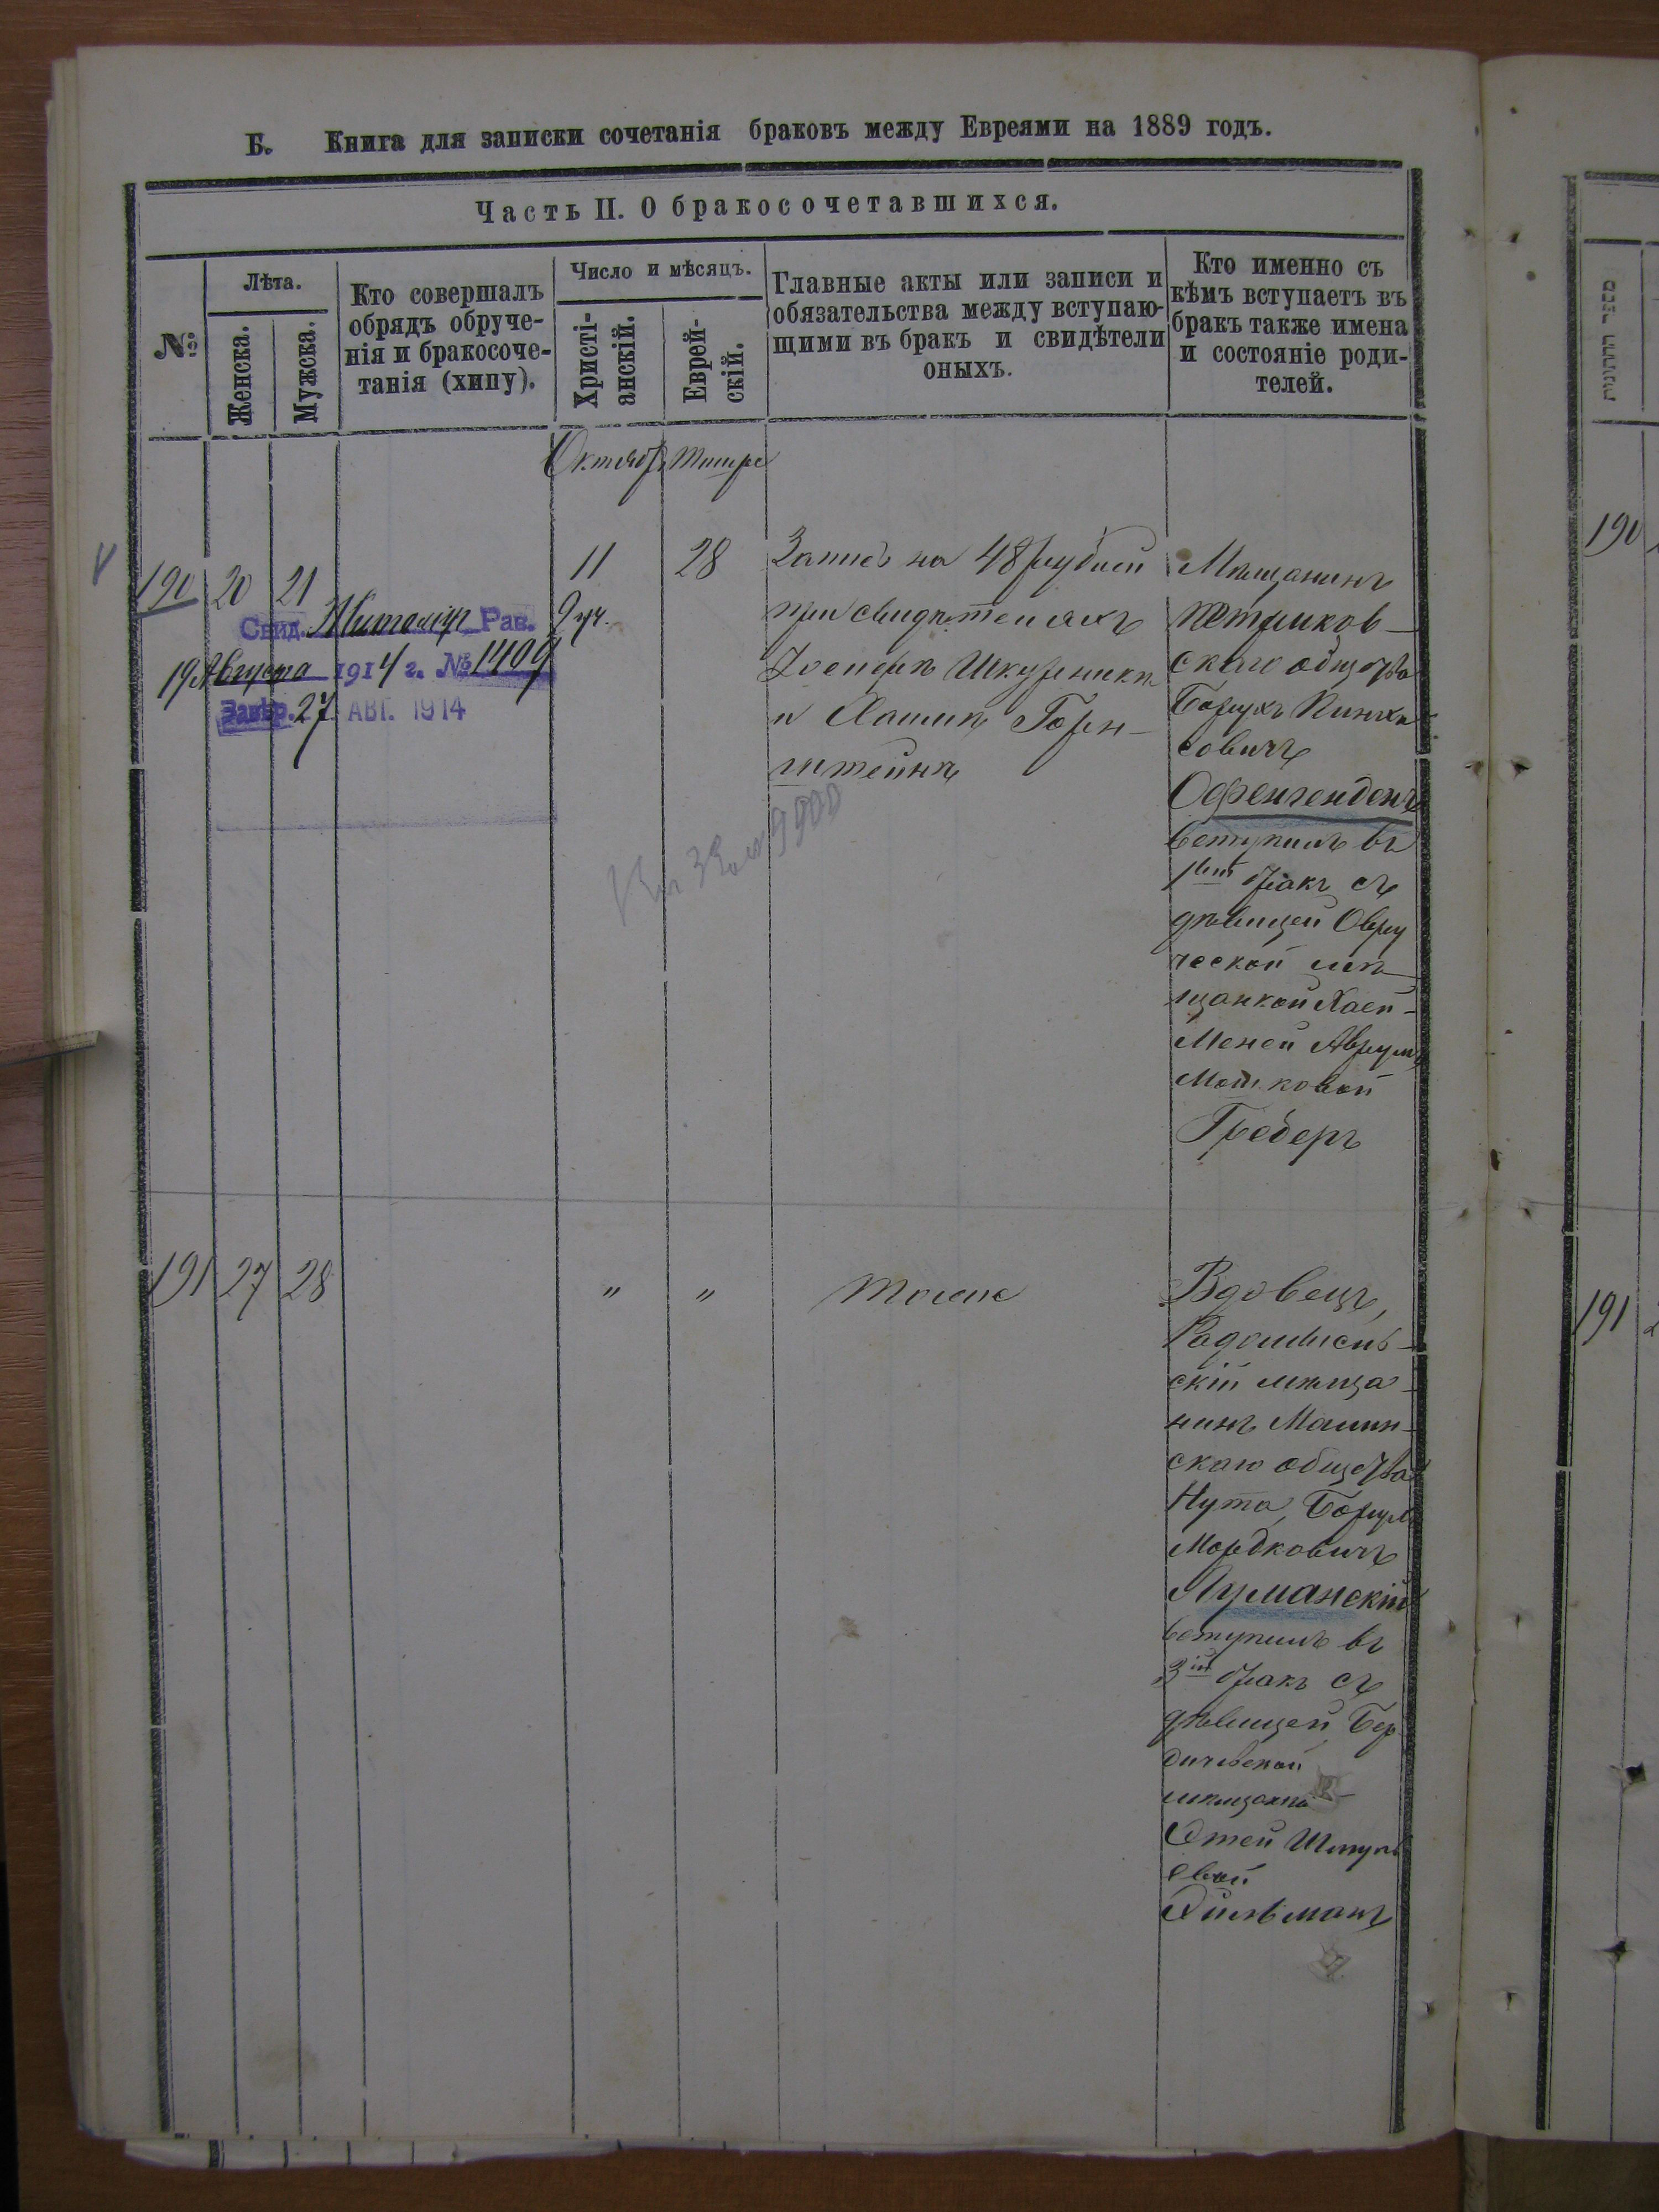 Б. Книга для записки сочетанія браковъ между Евреями на 1889 годъ.
Часть II. О бракосочетавшихся.
№
Лѣта.
Женска.
Мужска.
Кто совершалъ
обрядъ обруче-
нія и бракосоче-
танія (хипу).
Число и мѣсяцъ.
Христі-
анскій.
Еврей-
скій.
Главные акты или записи и
обязательства между вступаю-
щими въ бракъ и свидѣтели
оныхъ.
Кто именно съ
кѣмъ вступаетъ въ
бракъ также имена
и состояніе роди-
телей.
Октябр. Тишре
190 20 21
11 28
Свид. Житомір Рав.
19 Августа 1914 г. № 1409
Завѣр. 27 АВГ. 1914
Запись на 48 рублей
при свидѣтеляхъ
Іосифѣ Шкурникѣ
и Хаимѣ Горн-
штейнѣ
Мѣщанинъ
Петриков-
скаго общества
Борухъ Пинха
совичъ
Офенгенденъ
вступилъ въ
1вый бракъ съ
дѣвицей Овру
ческой мѣ-
щанкой Хаей-
Меней Аврумъ
Мошковой
Греберъ
191 27 28
" "
Тоже
Вдовецъ,
Радомысль-
скій мѣща-
нинъ Малин-
скаго общества
Нута Борухъ
Мордковичъ
Луманскій
вступилъ въ
3ій бракъ съ
дѣвицей Бер
дичевской
мѣщанкой
Этей Шмуль
евой
190
191